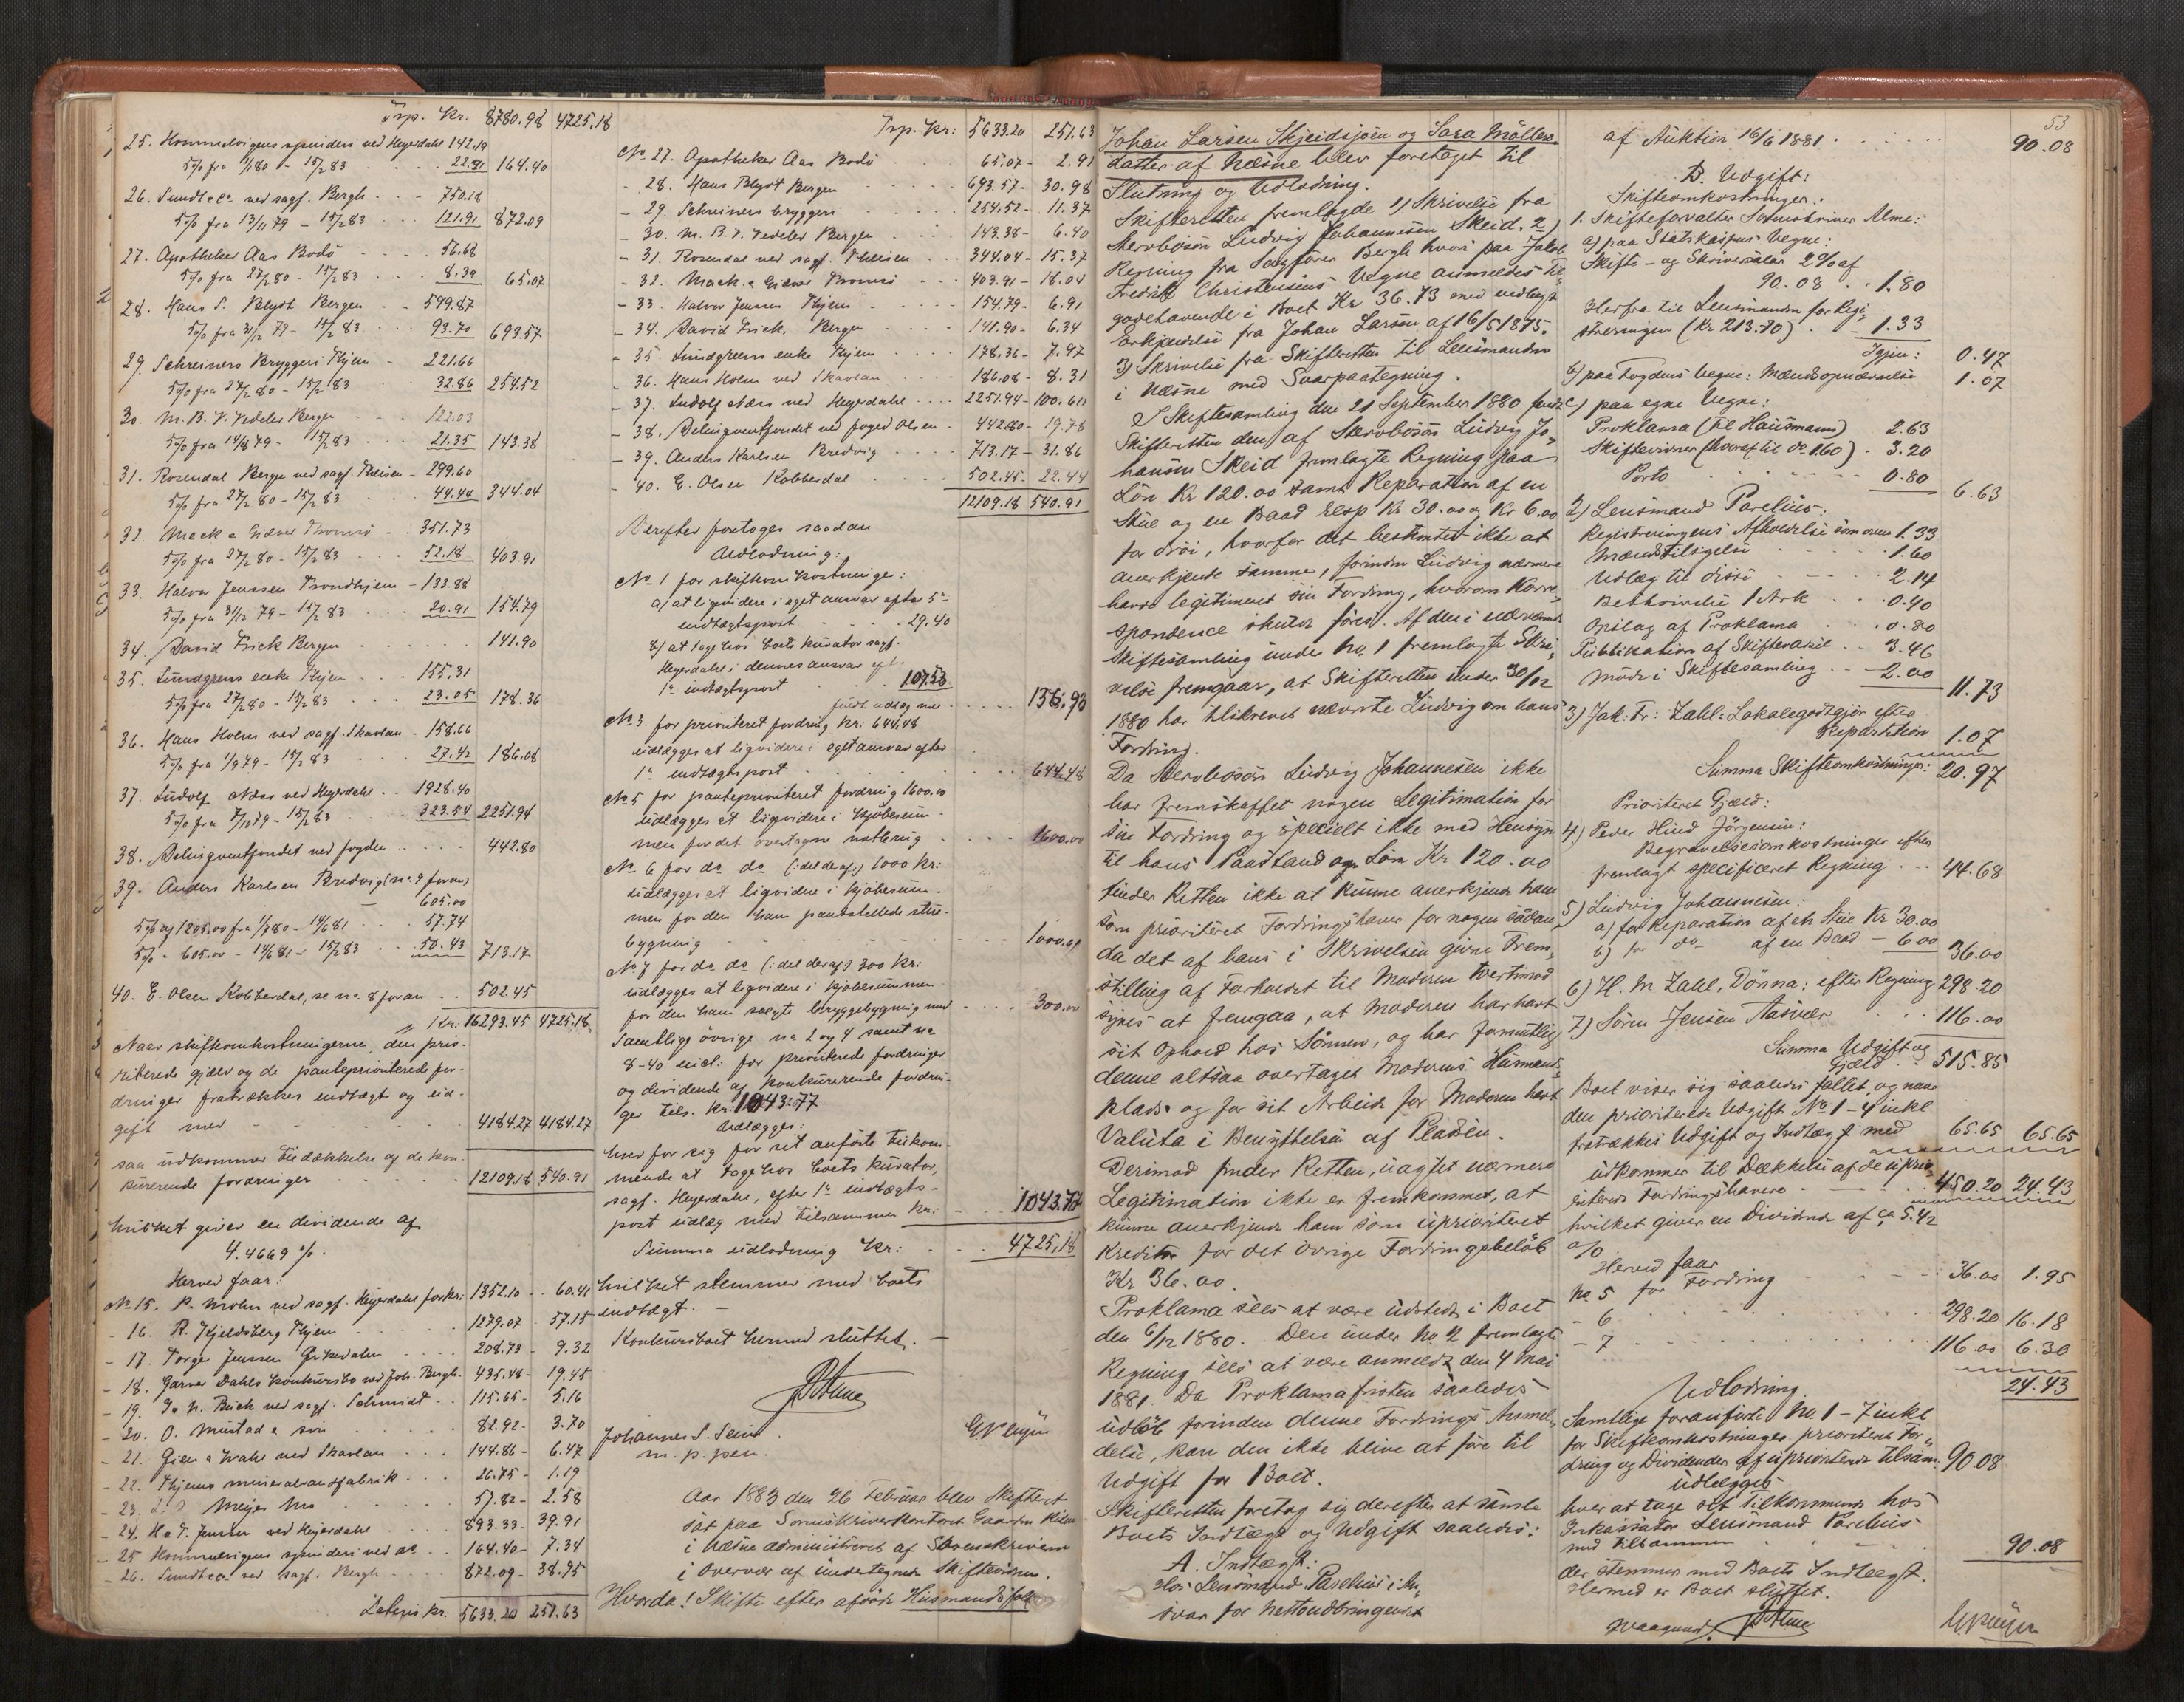 Trp. Kr: 8780.98 4725.18
25. Hommelvigens spinderi ved Heyerdahl 142.19
5% fra 1/1 80 - 15/2 83 . . 22.21 164.40
26. Sundt & Co ved sagf. Bergh . . 750.18
5% fra 13/11 79 - 15/2 83 . . 121.91 872.09
27. Apotheker Aas Bodö . . 56.68
5% fra 27/2 80 - 15/2 83 . . 8.39 65.07
28. Hans S. Blydt Bergen . . 599.87
5% fra 31/12 79 - 15/2 83 . . 93.70 693.57
29. Schreiners Bryggeri Thjem - 221.66
5% fra 27/2 80 - 15/2 83 . . 32.86 254.52
30. M. B. V. Vedeler Bergen . . 122.03
5% fra 14/8 79 - 15/2 83 . . 21.35 143.38
31. Rosendal Bergen ved sagf. Theisen - 299.60
5% fra 27/2 80 - 15/2 83 . . 44.44 344.04
32. Mack & Gidver Tromsö . . 351.73
5% fra 27/2 80 - 15/2 83 . . 52.18 403.91
33. Halvor Jenssen Trondhjem - 133.88
5% fra 31/12 79 - 15/2 83 . . 20.91 154.79
34. David Frick Bergen . . 141.90
35. Lundgrens enke Thjem . . 155.31
5% fra 27/2 80 - 15/2 83 . . 23.05 178.36
36. Hans Holm ved sagf. Skavlan . 158.66
5% fra 1/9 79 - 15/2 83 . . 27.42 186.08
37. Ludolf Næss ved Heyerdahl . . 1928.40
5% fra 8/10 79 - 15/2 83 . . 323.54 2251.94
38. Delinqventfondet ved fogden . . 442.80
39. Anders Karlsen Bredvig (no 9 foran)
605.00
5% af 1205.00 fra 1/7 80 - 14/6 81 . . 57.74
5% - 605.00 - 14/6 81 - 15/2 83 . . 50.43 713.17
40. E. Olsen Kobberdal, se no. 8 foran . . 502.45
Kr: 16293.45 4725.18
Naar skifteomkostningerne, den prio-
riterede gjæld og de panteprioriterede for-
dringer fratrækkes indtægt og ud-
gift med - - - 4184.27 4184.27
saa udkommer til dækkelse af de kon-
kurerende fordringer . . 12109.18 540.91
hvilket giver en dividende af
4.4669 %.
Herved faar:
No 15. P. Mohn ved sagf. Heyerdahl for kr: 1352.10 . . 60.41
- 16. R. Kjeldsberg Thjem . . 1279.07 - 57.15
- 17. Torge Jenssen . . 208.73 - 9.32
- 18. Garver Dahls konkursbo ved Joh. Bergh - 435.48 - 19.45
- 19. Ja N. Buck ved sagf. Schmidt . . 115.65 - 5.16
- 20. O. Mustad & sön . . 82.92 - 3.70
- 21. Gien & Wahl ved Skavlan . . 144.86 - 6.47
- 22. Thjems mineralvandfabrik . . 26.75 - 1.19
- 23. Meijer Mo . . 57.82 - 2.58
- 24. H & F. Jenssen ved Heyerdahl . . 893.33 - 39.91
- 25 Hommelvigens spinderi ved do . . 164.40 - 7.34
- 26. Sundt & Co ved sagf. Bergh . . 872.09 - 38.95
Lateris kr. 5633.20 251.63
Trp. Kr: 5633.20 251.63
No 27. Apotheker Aas Bodö . . 65.07 - 2.91
- 28. Hans Blydt Bergen . . 693.57 - 30.98
- 29. Schreiners bryggeri . . 254.52 - 11.37
- 30. M. B. V. Vedeler Bergen . . 143.38 - 6.40
- 31. Rosendal ved sagf. Theisen . . 344.04 - 15.37
- 32. Mack & Gidver Tromsö . . 403.91 - 18.04
- 33. Halvor Jenssen Thjem . . 154.79 - 6.91
- 34. David Frick, Bergen . . 141.90 - 6.34
- 35. Lundgrens enke Thjem . . 178.36 - 7.97
- 36. Hans Holm ved Skavlan . . 186.08 - 8.31
- 37. Ludolf Næss ved Heyerdahl . . 2251.94 - 100.60
- 38. Delinqventfondet ved foged Olsen - 442.80 - 19.78
- 39. Anders Karlsen Bredvig . . 713.17 - 31.86
- 40. E. Olsen Kobberdal . . 502.45 - 22.44
12109.18 540.91
Derefter foretoges saadan
Udlodning:
No. 1 for skifteomkostninger:
a) at ligvidere i eget ansvar efter 5te
indtægtspost . . 29.40
b) at tage hos boets kurator sagf.
Heyerdahl i dennes ansvar eft.
1te indtægtspost . . 107.53
fuldt udlæg med . . 136.93
No 3. for prioriteret fordring kr: 644.48
udlægges at ligvidere i eget ansvar efter
1te indtægtspost . . 644.48
No 5 for panteprioriteret fordring 1600.00
udlægges at ligvidere i kjöbesum-
men for det overtagne notbrug . . 1600.00
No 6 for do do (: del deraf :) 1000 kr:
udlægges at ligvidere i kjöbesum-
men for den ham pantstillede stue-
bygning . . 1000.00
No 7 for do do (: del deraf :) 300 kr:
udlægges at ligvidere i kjöbesummen
for den ham solgte bryggebygning med . . 300.00
Samtlige övrige no 2 og 4 samt no
8-40 incl: for prioriterede fordringer
og dividende af konkurerende fordrin-
ger tils. kr. 1043.77
Udlægges:
hver for sig for sit anförte tilkom-
mende at tage hos boets kurator,
sagf. Heyerdahl, efter 1te indtægts-
post udlæg med tilsammen kr: 1043.77
Summa udlodning Kr: . . 4725,18
hvilket stemmer med boets
indtægt. -
Konkursboet hermed sluttet. -
Johannes S. Seines
m. p. pen.
Aar 1883 den 26 Februar blev Skifteret
sat paa Sorenskriverkontoret Gaarden Kilen
i Næsne administreret af Sorenskriveren
i Overvær af undertegnede Skiftevidner.
Hvorda! Skifte efter afdöde Husmandsfolk
Johan Larsen Skjeidsjöen og Sara Möllers-
datter af Næsne blev foretaget til
Slutning og Udlodning.
Skifteretten fremlagde 1) Skrivelse fra
Stervbosön Ludvig Johannesen Skeid. 2)
Regning fra Sagförer Bergh hvori paa Jakob
Fredrik Christensens Vegne anmeldes Til-
godehavende i Boet Kr 36.73 med vedlagt
Erkjendelse fra Johan Larsen af 16/5 1875.
3) Skrivelse fra Skifteretten til Lensmanden
i Næsne med Svarpaategning.
I Skiftesamling den 21 September 1880 fandt
Skifteretten den af Stervbosön Ludvig Jo-
hansen Skeid fremlagte Regning paa
Lön Kr 120.00 samt Reparation af en
Stue og en Baad resp Kr 30.00 og Kr 6.00
for dröi, hvorfor det bestemtes ikke at
anerkjende samme, forinden Ludvig nærmere
havde legitimeret sin Fordring, hvorom Korre-
spondence skulde föres. Af den i nærværende
Skiftesamling under No. 1 fremlagte Skri-
velse fremgaar, at Skifteretten under 30/12
1880 har tilskrevet nævnte Ludvig om hans
Fordring.
Da Stervbosön Ludvig Johannesen ikke
har fremskaffet nogen Legitimation for
sin Fordring og specielt ikke med Hensyn
til hans Paastand om Lön Kr 120.00
finder Retten ikke at kunne anerkjende ham
som prioriteret Fordringshaver for nogen sådan
da det af hans i Skrivelsen givne Frem-
stilling af Forholdet til Moderen tvertimod
synes at fremgaa, at Moderen har havt
sit Ophold hos Sönnen, og har formentlig
denne altsaa overtaget Moderens Husmands-
plads og for sit Arbeide for Moderen havt
Valuta i Benyttelsen af Pladsen.
Derimod finder Retten, uagtet nærmere
Legitimation ikke er fremkommet, at
kunne anerkjende ham som uprioriteret
Kreditor for det övrige Fordringsbelöb
Kr 36.00.
Proklama sees at være udstedt i Boet
den 6/12 1880. Den under No 2 fremlagte
Regning sees at være anmeldt den 4 Mai
1881. Da Proklamafristen saaledes
udlöb forinden denne Fordrings Anmel-
delse, kan den ikke blive at före til
Udgift for Boet.
Skifteretten foretog sig derefter at samle
Boets Indtægt og Udgift saaledes:
A. Indtægt:
Hos Lensmand Parelius i An-
svar for Nettoudbringendet
53
af Auktion 16/6 1881 . . 90.08
B. Udgift:
Skifteomkostninger:
1. Skifteforvalter Sorenskriver Alme:
a) paa Statskassens Vegne:
Skifte- og Skriversalær 2% af
90.08 . . 1.80
Herfra til Lensmanden for Regi-
streringen (Kr 213.70) . . 1.33
Igjen: 0.47
b) paa Fogdens Vegne: Mændsopnævnelse 1.07
c) paa egne Vegne:
Proklama (til Hausmann) 2.63
Skiftevidner (hvoraf til do 1.60) . 3.20
Porto . . 0.80 6.63
2) Lensmand Parelius:
Registreringens Afholdelse som oven 1.33
Mændstilsigelse . . 1.60
Udlæg til disse . . 2.14
Beskrivelse 1 Ark . . 0.40
Opslag af Proklama . . 0.80
Publikation af Skiftevarsel . . 3.46
Möde i Skiftesamling . . 2.00 11.73
3) Jak. Fr: Zahl: Lokalegodtgjör efter
Repartition 1.07
Summa Skifteomkostninger: 20.97
Prioriteret Gjæld:
4) Peder Hind Jörgensen:
Begravelsesomkostninger efter
fremlagt specificeret Regning . . 44.68
5) Ludvig Johannesen:
a) for Reparation af en Stue Kr 30.00
b) for do af en Baad - 6.00 36.00
6) H. M Zahl, Dönna: efter Regning 298.20
7) Sören Jensen Aasvær . . 116.00
Summa Udgift og
Gjæld . . 515.85
Boet viser sig saaledes fallit, og naar
den prioriterede Udgift No 1-4 inkl
fratrækkes Udgift og Indtægt med 65.65 65.65
udkommer til Dækkelse af de uprio-
riterede Fordringshavere . . 450.20 24.43
hvilket giver en Dividende af ca 5.42
%
Herved faar
No. 5 for Fordring . . 36.00 1.95
- 6 . . 298.20 16.18
- 7 . . 116.00 6.30
24.43
Udlodning.
Samtlige foranförte No. 1-7 inkl
for Skifteomkostninger, prioriteret For-
dring og Dividender af uprioriterede tilsam. 90.08
udlægges
hver at tage sit Tilkommende hos
Inkassator Lensmand Parelius
med tilsammen . . 90.08
der stemmer med Boets Indtægt.
Hermed er Boet sluttet.